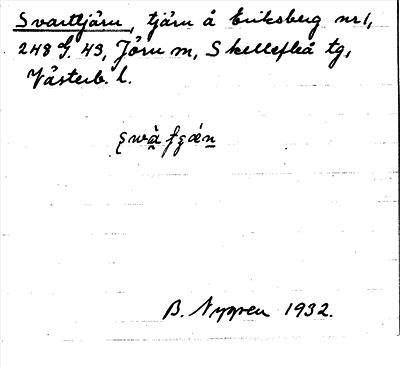 Svarttjärn, tjärn å Eriksberg nr 1,
248 G. 43, Jörn sn, Skellefteå tg,
Västerb. l.
B. Nygren 1932.